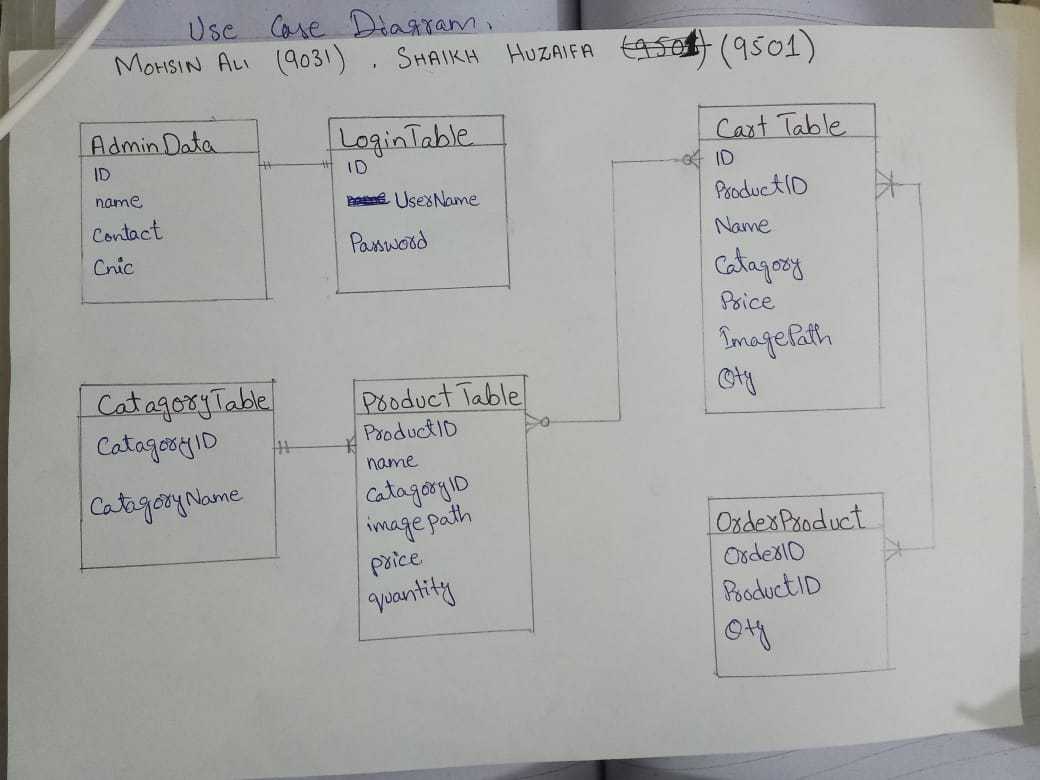 Use Case Diagram.
MOHSIN ALI (9031) . SHAIKH HUZAIFA (9501) (9501)
Admin Data
ID
name
Contact
Cnic
LoginTable
ID
UserName
Password
Cart Table
ID
ProductID
Name
Catagory
Price
ImagePath
Qty
CatagoryTable
CatagoryID
CatagoryName
Product Table
ProductID
name
CatagoryID
image path
price
quantity
OrderProduct
OrderID
ProductID
Qty